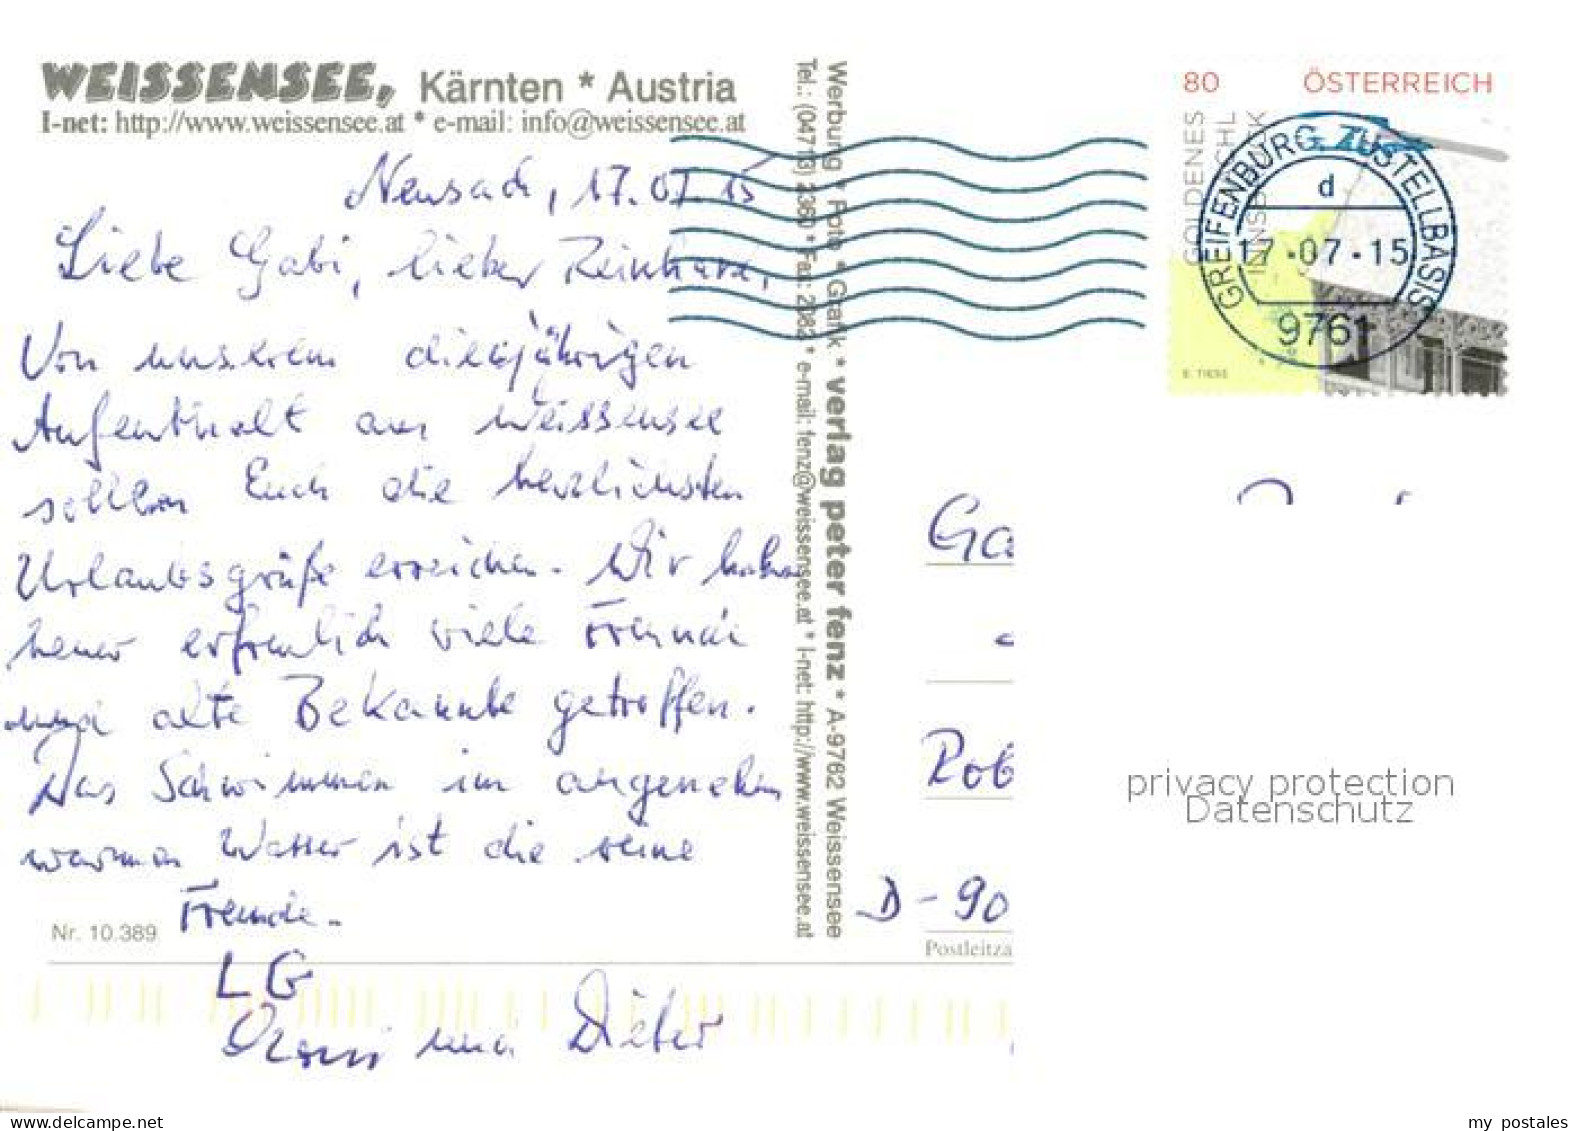 WEISSENSEE, Kärnten * Austria
I-net: http://www.weissensee.at * e-mail: info@weissensee.at
Neusach, 17.07.15
Liebe Gabi, lieber Reinhard,
Von unserem diesjährigen
Aufenthalt am Weissensee
sollen Euch die herzlichsten
Urlaubsgrüße erreichen. Wir haben
heuer erfreulich viele Freunde
und alte Bekannte getroffen.
Das Schwimmen im angenehm
warmen Wasser ist die reine
Freude.
LG
und Dieter
Nr. 10.389
Werbung * Foto * Grafik * verlag peter fenz * A-9762 Weissensee
Tel.: (04713) 2360 * Fax: 2083 * e-mail: fenz@weissensee.at * I-net: http://www.weissensee.at
80 ÖSTERREICH
GOLDENES
DACHL
INNSBRUCK
E. TIESS
GREIFENBURG ZUSTELLBASIS
d
17.-07.-15
9761
Ga
Rob
D-90
Postleitza
privacy protection
Datenschutz
www.delcampe.net
my_postales